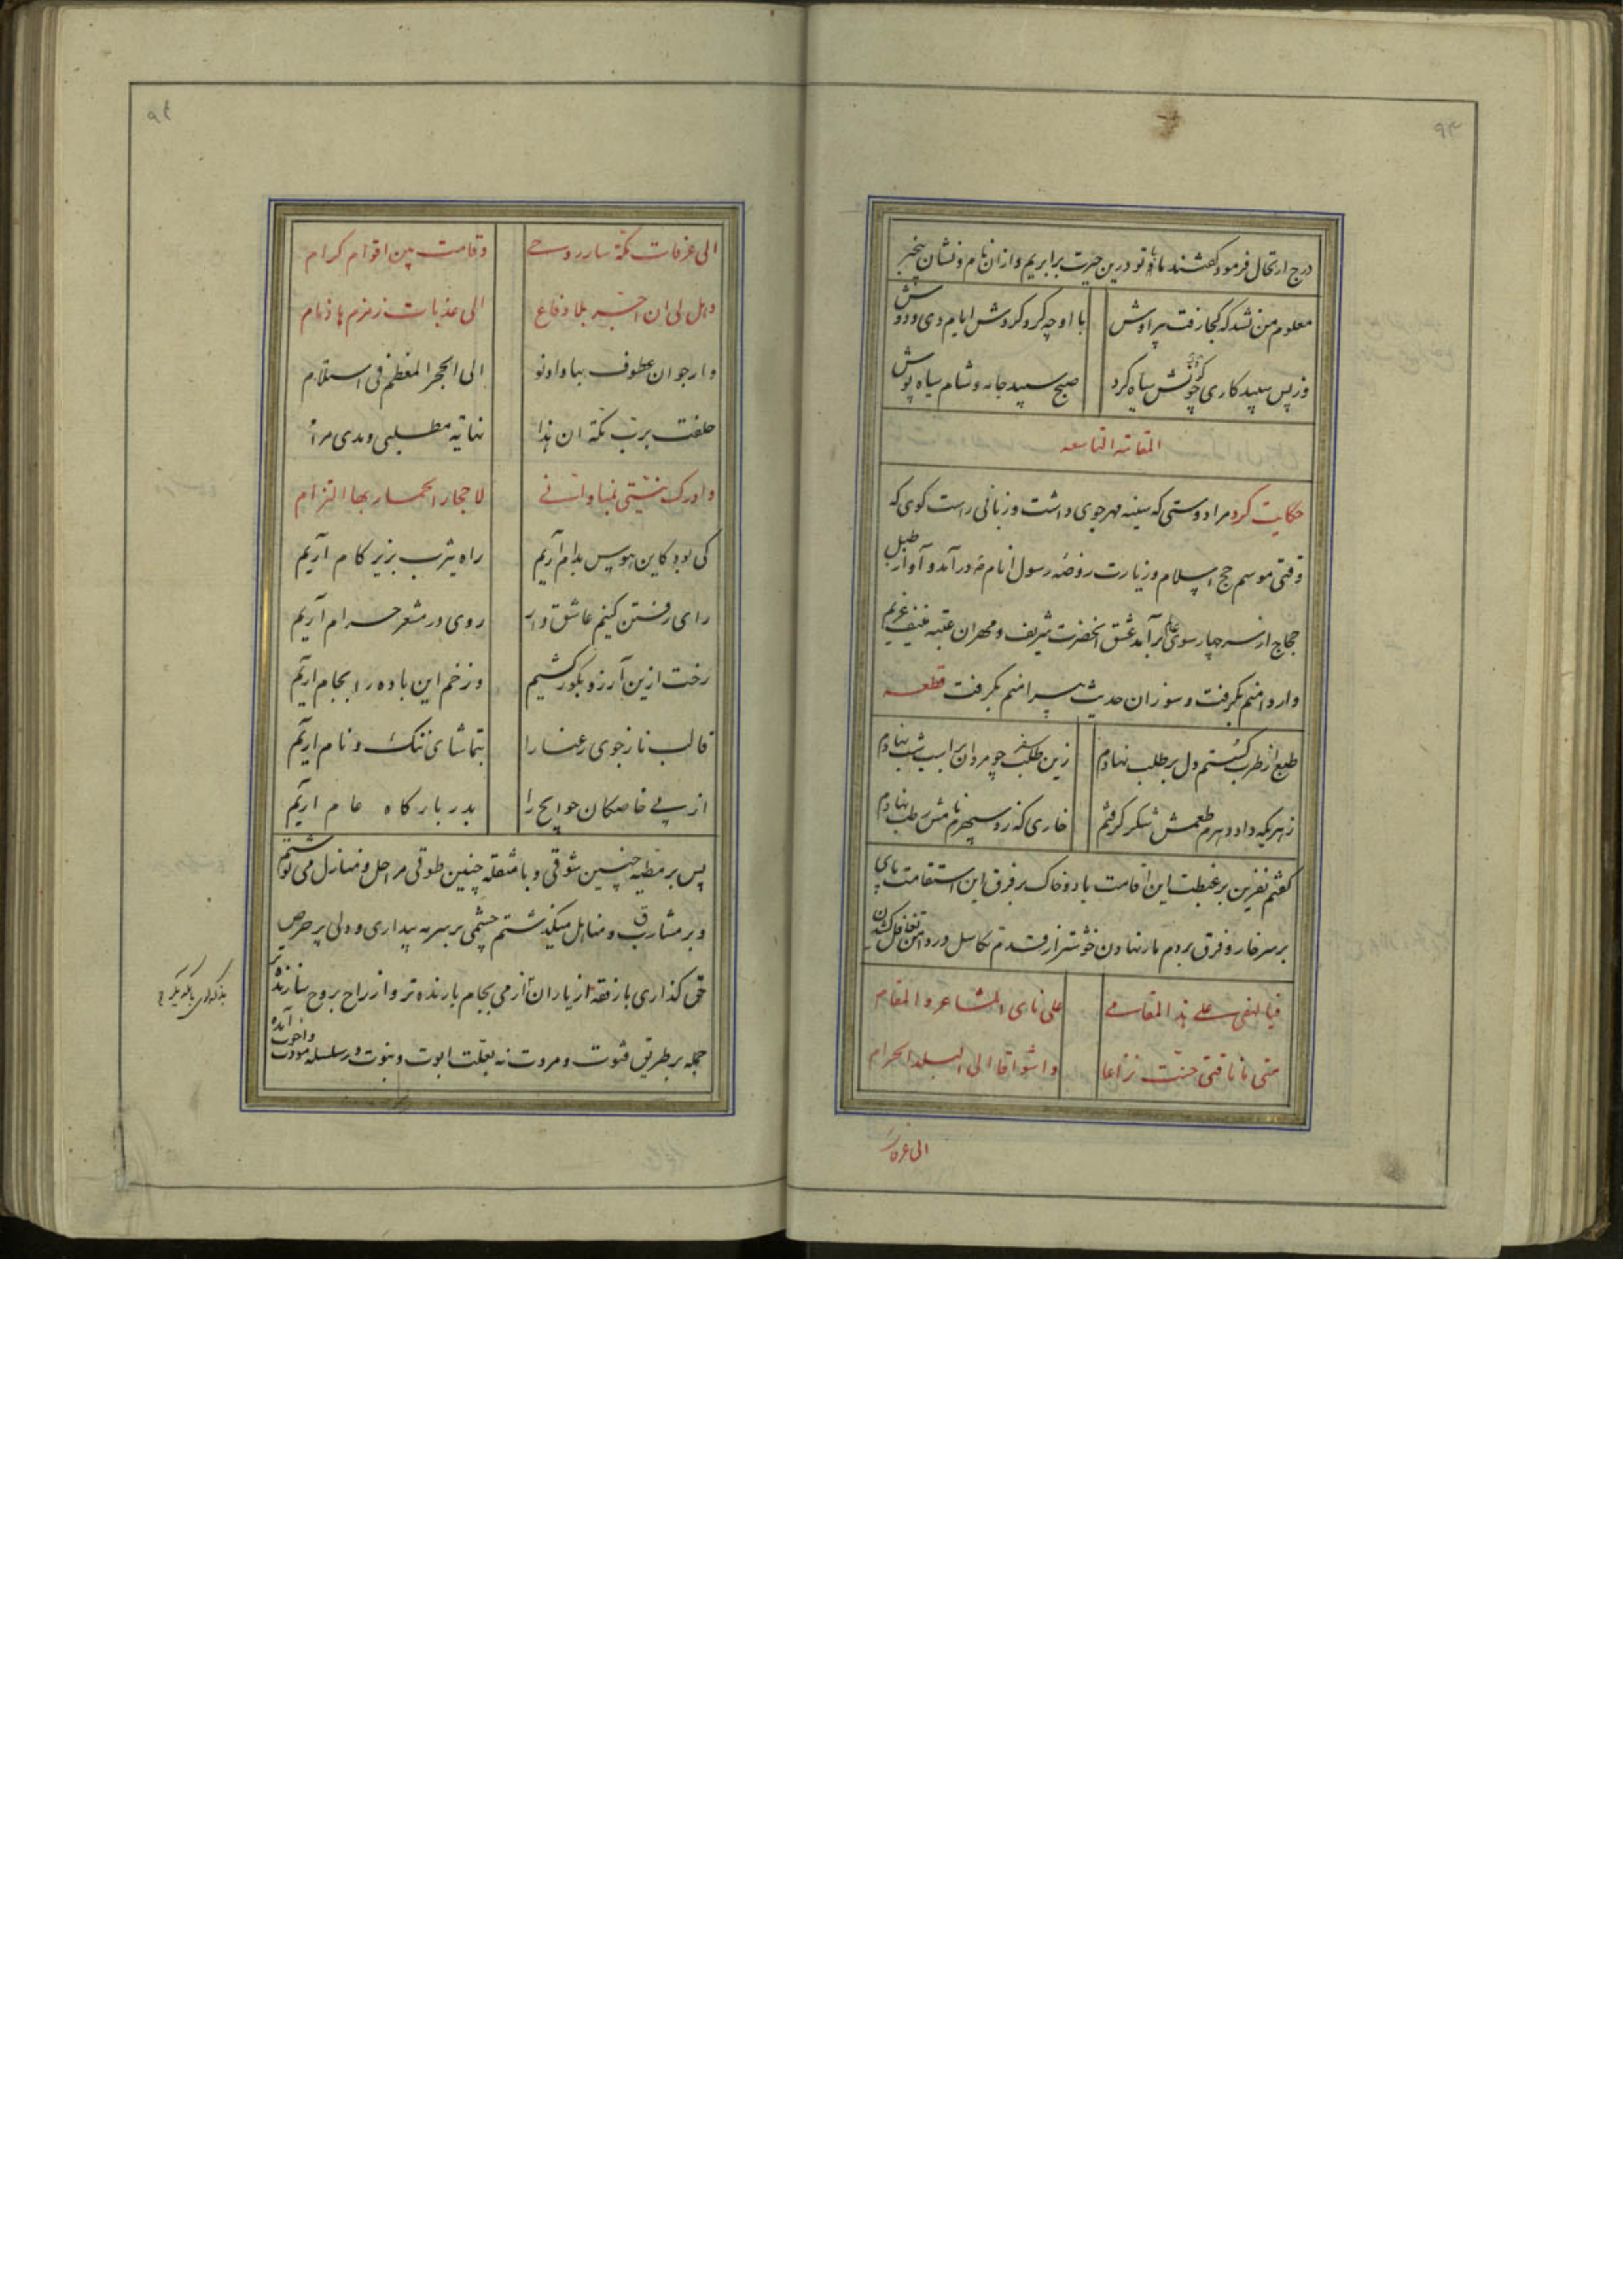 ۹۳
درج ارتحال فرمود گفتند ما و تو درین حیرت برابریم و ازان نام و نشان بیخبر
معلوم من نشد که کجا رفت پیر اوش با او چه کرد گردش ایام دی و دوش
وز پس سپید کاری گردون چونش سیاه کرد صبح سپید جامه و شام سیاه پوش
المقامة التاسعه
حکایت کرد مرا دوستی که سینه مهرجوی داشت و زبانی راست کوی که
وقتی موسم حج اسلام و زیارت روضه رسول انام در آمد و آواز طبل
حجاج از سر چهار سوی برآمد عشق آنحضرت شریف و مهر ان عتبه منیف غریم
وار دامنم بگرفت و سوز ان حدیث پیرامنم بگرفت قطعه
طبع از طرب گسستم دل بر طلب نهادم زین طلب چو مردان بر اسب شب نهادم
زهریکه داد دهرم طعمش شکر گرفتم خاری که زد سپهرم نامش رطب نهادم
گفتم نفرین بر غبطت این اقامت باد و خاک بر فرق این استقامت پای
بر سر خار و فرق بر دم مار نهادن خوشتر از قدم تکاسل در دامن تغافل کشیدن
فیا لهفی علی هذا المقام علی نادی المشاعر و المقام
متی ما ناقتی حنت نزاعا و اشواقا الی البلد الحرام
الی عرفات
۹٤
الی عرفات مکة سار روحی و قامت بین اقوام کرام
وهل لی ان اخبر بلا دفاع الی عذبات زمزم ها ذمام
وارجو ان عطوف بها وادنو الی الحجر المعظم فی استلام
حلفت برب مکة ان هذا نهایة مطلبی و مدی مرام
وادرک منیتی بمنا و انی لاحجار الجمار بها التزام
کی بود کاین هوس بدام آریم راه یثرب بزیر کام آریم
رای رفتن کنیم عاشق وار روی در مشعر حرام آریم
رخت ازین آرزو بکور کشیم وز خم این باده را بجام آریم
قالب نازجوی رعنا را بتماشای ننک و نام آریم
از پی خاصکان حوایج را بدر بارکاه عام آریم
پس بر مطیه چنین شوقی و با مثقله چنین طوقی مراحل و منازل می نوشتم
و بر مشارب و مناهل میگذشتم چشمی بر سرمه بیداری و دلی پر حرص
حق گذاری با رفقهٔ از یاران از می بجام یارنده تر و از راح بروح سازنده تر
جمله بر طریق فتوت و مروت نه بعلت ابوت و بنوت در سلسله مودت و اخوت آمده